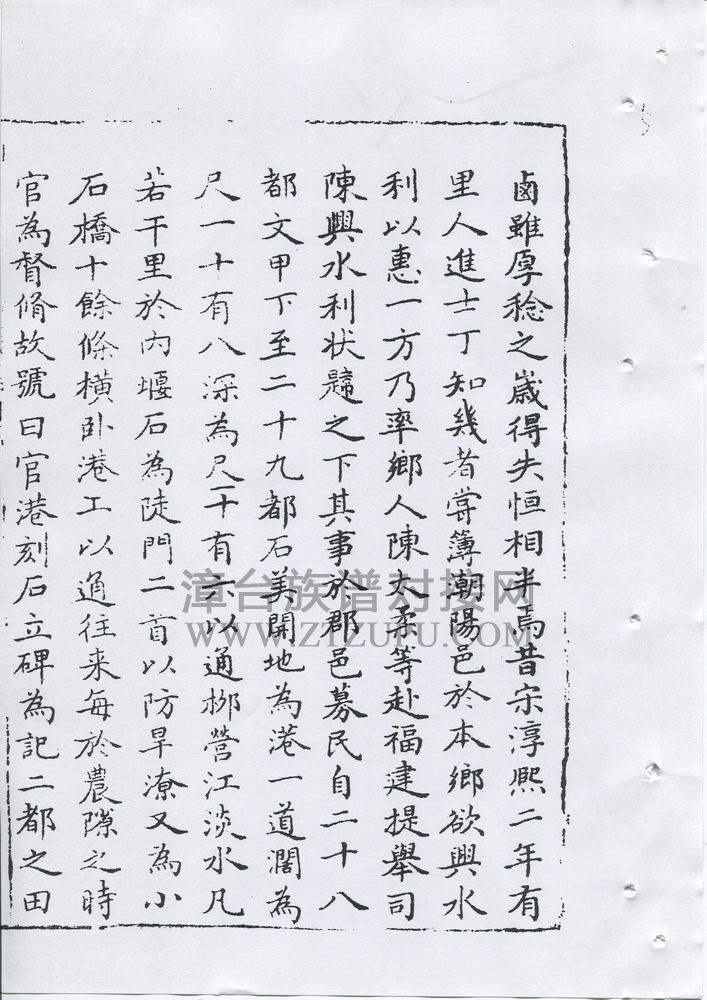 鹵雖厚稔之歲得失恒相半焉昔宋淳熙二年有
里人進士丁知幾者嘗簿朝陽邑於本鄉欲興水
利以惠一方乃率鄉人陳太柔等赴福建提舉司
陳興水利狀題之下其事於郡邑募民自二十八
都文甲下至二十九都石美開地為港一道濶為
尺一十有八深為尺一十有六以通栁營江淡水凡
若干里於內堰石為陡門二首以防旱潦又為小
石橋十餘條橫卧港工以通往来每於農隙之時
官為督脩故號曰官港刻石立碑為記二都之田
漳台族谱对接网
WWW.ZTZUPU.COM